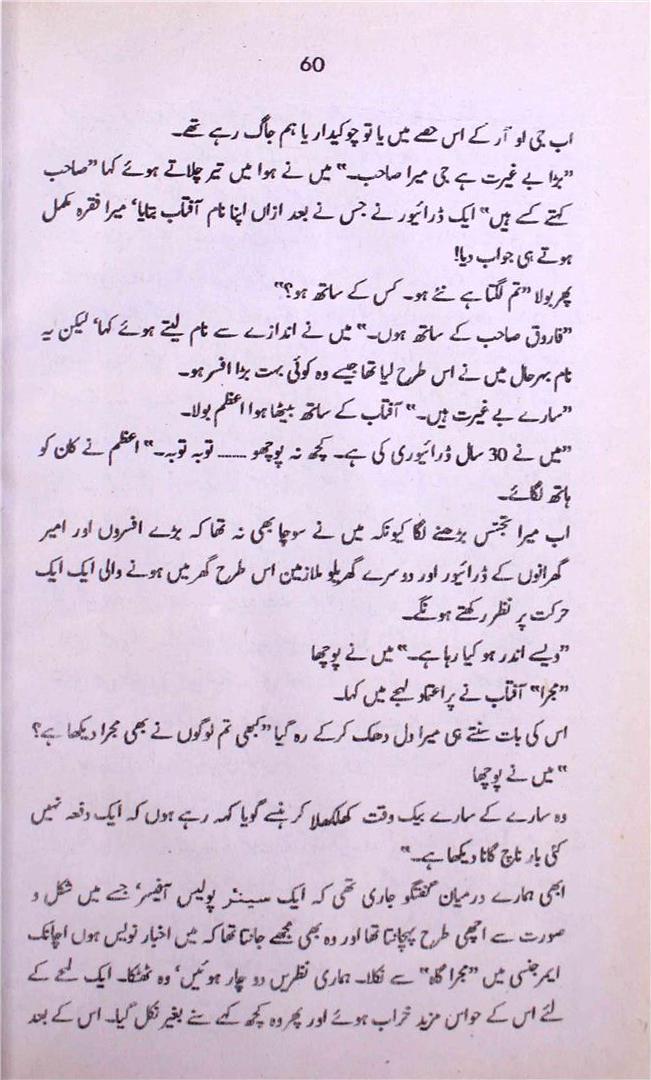 60
اب جی او آر کے اس حصے میں یا تو چوکیدار یا ہم جاگ رہے تھے۔
”بڑا بے غیرت ہے جی میرا صاحب۔“ میں نے ہوا میں تیر چلاتے ہوئے کہا ”صاحب
کہتے کسے ہیں“ ایک ڈرائیور نے جس نے بعد ازاں اپنا نام آفتاب بتایا‘ میرا فقرہ مکمل
ہوتے ہی جواب دیا!
پھر بولا ”تم لگتا ہے نئے ہو۔ کس کے ساتھ ہو؟“
”فاروق صاحب کے ساتھ ہوں۔“ میں نے اندازے سے نام لیتے ہوئے کہا‘ لیکن یہ
نام بہرحال میں نے اس طرح لیا تھا جیسے وہ کوئی بہت بڑا افسر ہو۔
”سارے بے غیرت ہیں۔“ آفتاب کے ساتھ بیٹھا ہوا اعظم بولا۔
”میں نے 30 سال ڈرائیوری کی ہے۔ کچھ نہ پوچھو ....... توبہ توبہ۔“ اعظم نے کان کو
ہاتھ لگائے۔
اب میرا تجسس بڑھنے لگا کیونکہ میں نے سوچا بھی نہ تھا کہ بڑے افسروں اور امیر
گھرانوں کے ڈرائیور اور دوسرے گھریلو ملازمین اس طرح گھر میں ہونے والی ایک ایک
حرکت پر نظر رکھتے ہونگے۔
”ویسے اندر ہو کیا رہا ہے۔“ میں نے پوچھا
”مجرا“ آفتاب نے پراعتماد لہجے میں کہا۔
اس کی بات سنتے ہی میرا دل دھک کرکے رہ گیا ”کبھی تم لوگوں نے بھی مجرا دیکھا ہے؟
“ میں نے پوچھا
وہ سارے کے سارے بیک وقت کھلکھلا کر ہنسے گویا کہہ رہے ہوں کہ ایک دفعہ نہیں
کئی بار ناچ گانا دیکھا ہے۔“
ابھی ہمارے درمیان گفتگو جاری تھی کہ ایک سینئر پولیس آفیسر‘ جسے میں شکل و
صورت سے اچھی طرح پہچانتا تھا اور وہ بھی مجھے جانتا تھا کہ میں اخبار نویس ہوں اچانک
ایمرجنسی میں ”مجرا گاہ“ سے نکلا۔ ہماری نظریں دو چار ہوئیں‘ وہ ٹھٹکا۔ ایک لمحے کے
لئے اس کے حواس مزید خراب ہوئے اور پھر وہ کچھ کہے سنے بغیر نکل گیا۔ اس کے بعد